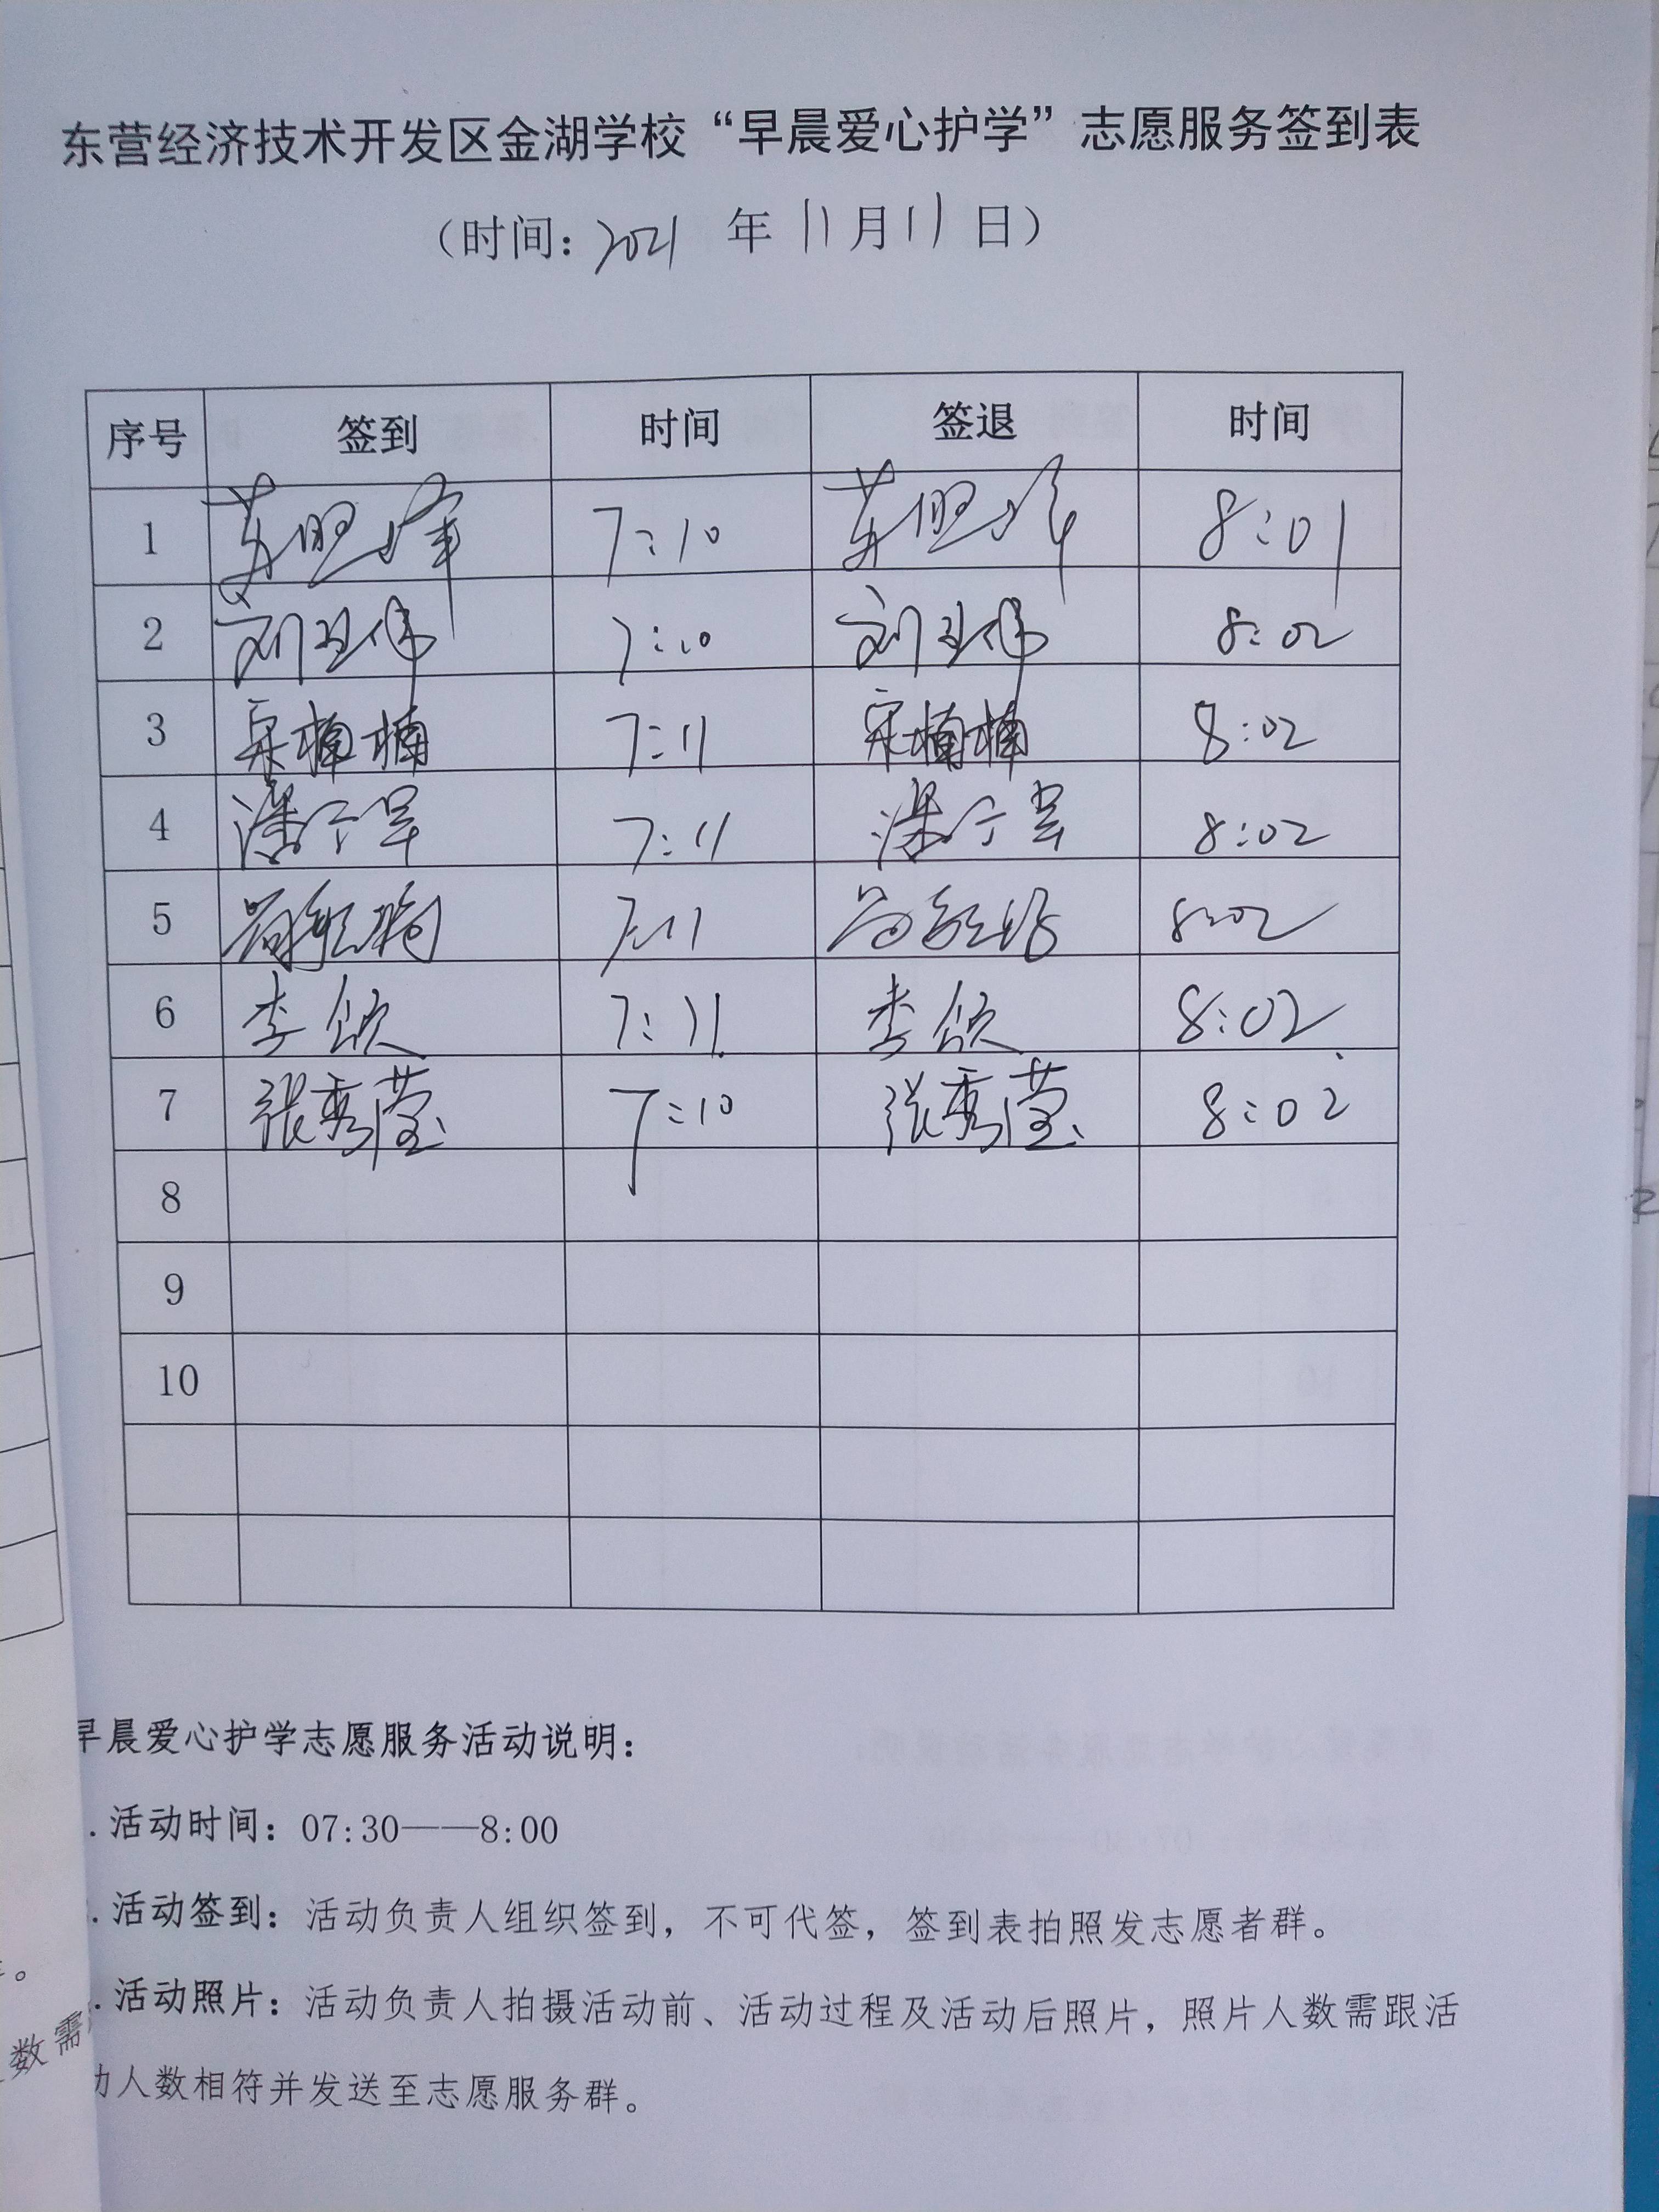 东营经济技术开发区金湖学校“早晨爱心护学”志愿服务签到表
（时间：2021 年 11月11 日）
序号 签到 时间 签退 时间
1 7:10 8:01
2 刘卫伟 7:10 刘卫伟 8:02
3 宋楠楠 7:11 宋楠楠 8:02
4 7:11 8:02
5 7:11 8:02
6 李欣 7:11 李欣 8:02
7 张秀莹 7:10 张秀莹 8:02
8
9
10
早晨爱心护学志愿服务活动说明：
.活动时间：07:30——8:00
.活动签到：活动负责人组织签到，不可代签，签到表拍照发志愿者群。
.活动照片：活动负责人拍摄活动前、活动过程及活动后照片，照片人数需跟活
动人数相符并发送至志愿服务群。
数需